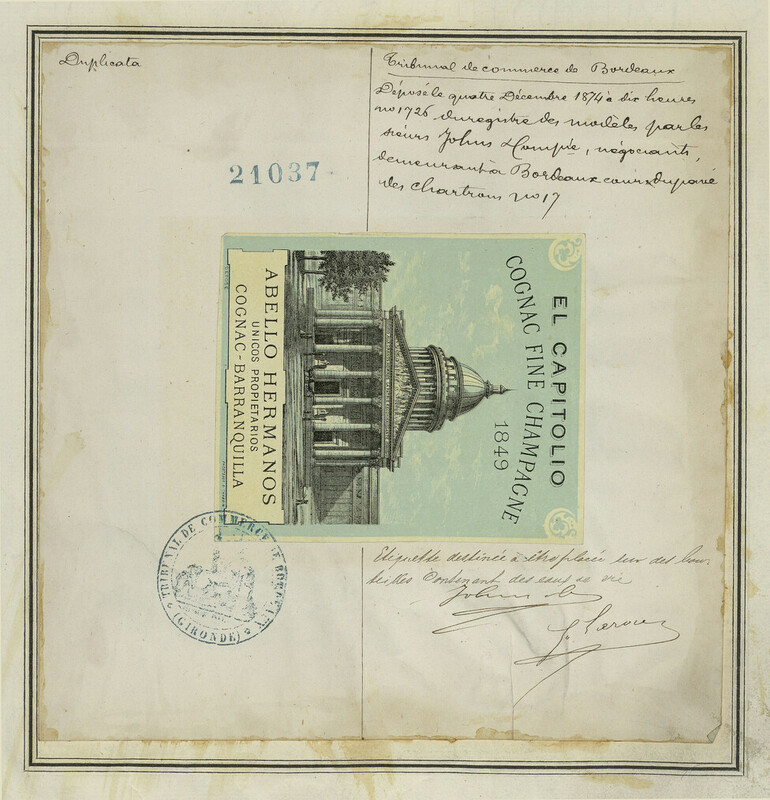 Duplicata
Tribunal de commerce de Bordeaux
Déposé le quatre Décembre 1874 à dix heures
no 1726 du registre des modèles par les
sieurs Johns & Compie, négociants,
demeurant à Bordeaux cours du pavé
des chartrons no 17
21037
EL CAPITOLIO
COGNAC FINE CHAMPAGNE
1849
ABELLO HERMANOS
UNICOS PROPIETARIOS
COGNAC-BARRANQUILLA
Etiquette destinée à être placée sur des bou-
teilles Contenant des eaux de vie
TRIBUNAL DE COMMERCE DE BORDEAUX
(GIRONDE)